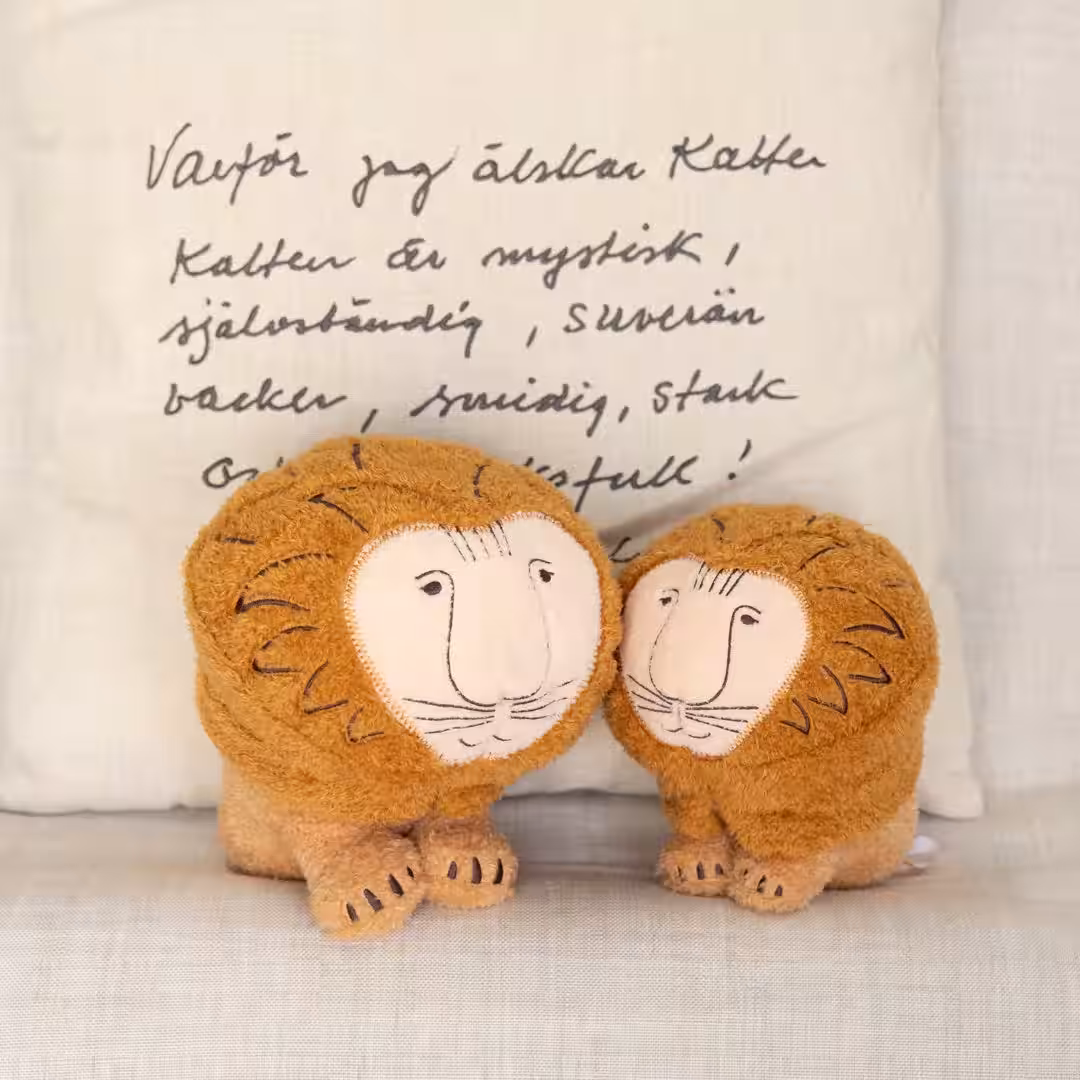 Varför jag älskar Katten
Katten är mystisk,
självständig, suverän
vacker, smidig, stark